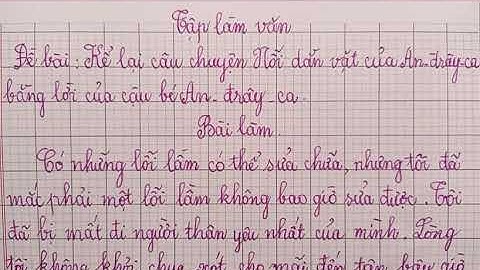 Tập làm văn
Đề bài: Kể lại câu chuyện Nỗi dằn vặt của An-đrây-ca
bằng lời của cậu bé An-đrây-ca.
Bài làm.
Có những lỗi lầm có thể sửa chữa, nhưng tôi đã
mắc phải một lỗi lầm không bao giờ sửa được. Tôi
đã bị mất đi người thân yêu nhất của mình. Lòng
tôi không khỏi chua xót cho mãi đến tận bây giờ